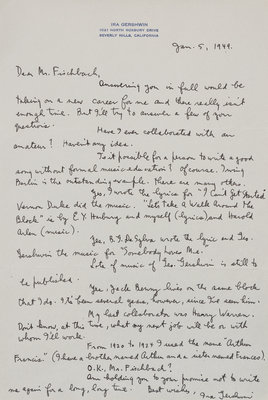 IRA GERSHWIN
1021 NORTH ROXBURY DRIVE
BEVERLY HILLS, CALIFORNIA
Jan. 5, 1949.
Dear Mr. Fischbach,
Answering you in full would be
taking on a new career for me and there really isn't
enough time. But I'll try to answer a few of your
questions.
Have I ever collaborated with an
amateur? Haven't any idea.
Is it possible for a person to write a good
song without formal music education? Of course. Irving
Berlin is the outstanding example. There are many others.
Yes, I wrote the lyric for "I Can't Get Started
Vernon Duke did the music. "Let's Take a Walk Around the
Block" is by E.Y. Harburg and myself (lyrics) and Harold
Arlen (music).
Yes, B.G. DeSylva wrote the lyric and Geo.
Gershwin the music for "Somebody Loves Me.
Lots of music of Geo. Gershwin is still to
be published.
Yes, Jack Benny lives on the same block
that I do. It's been several years, however, since I've seen him.
My last collaborator was Harry Warren.
Don't know, at this time, what my next job will be or with
whom I'll work.
From 1920 to 1924 I used the name "Arthur
Francis" (I have a brother named Arthur and a sister named Frances).
O.K. Mr. Fischbach?
Am holding you to your promise not to write
me again for a long, long time. Best wishes,
Ira Gershwin